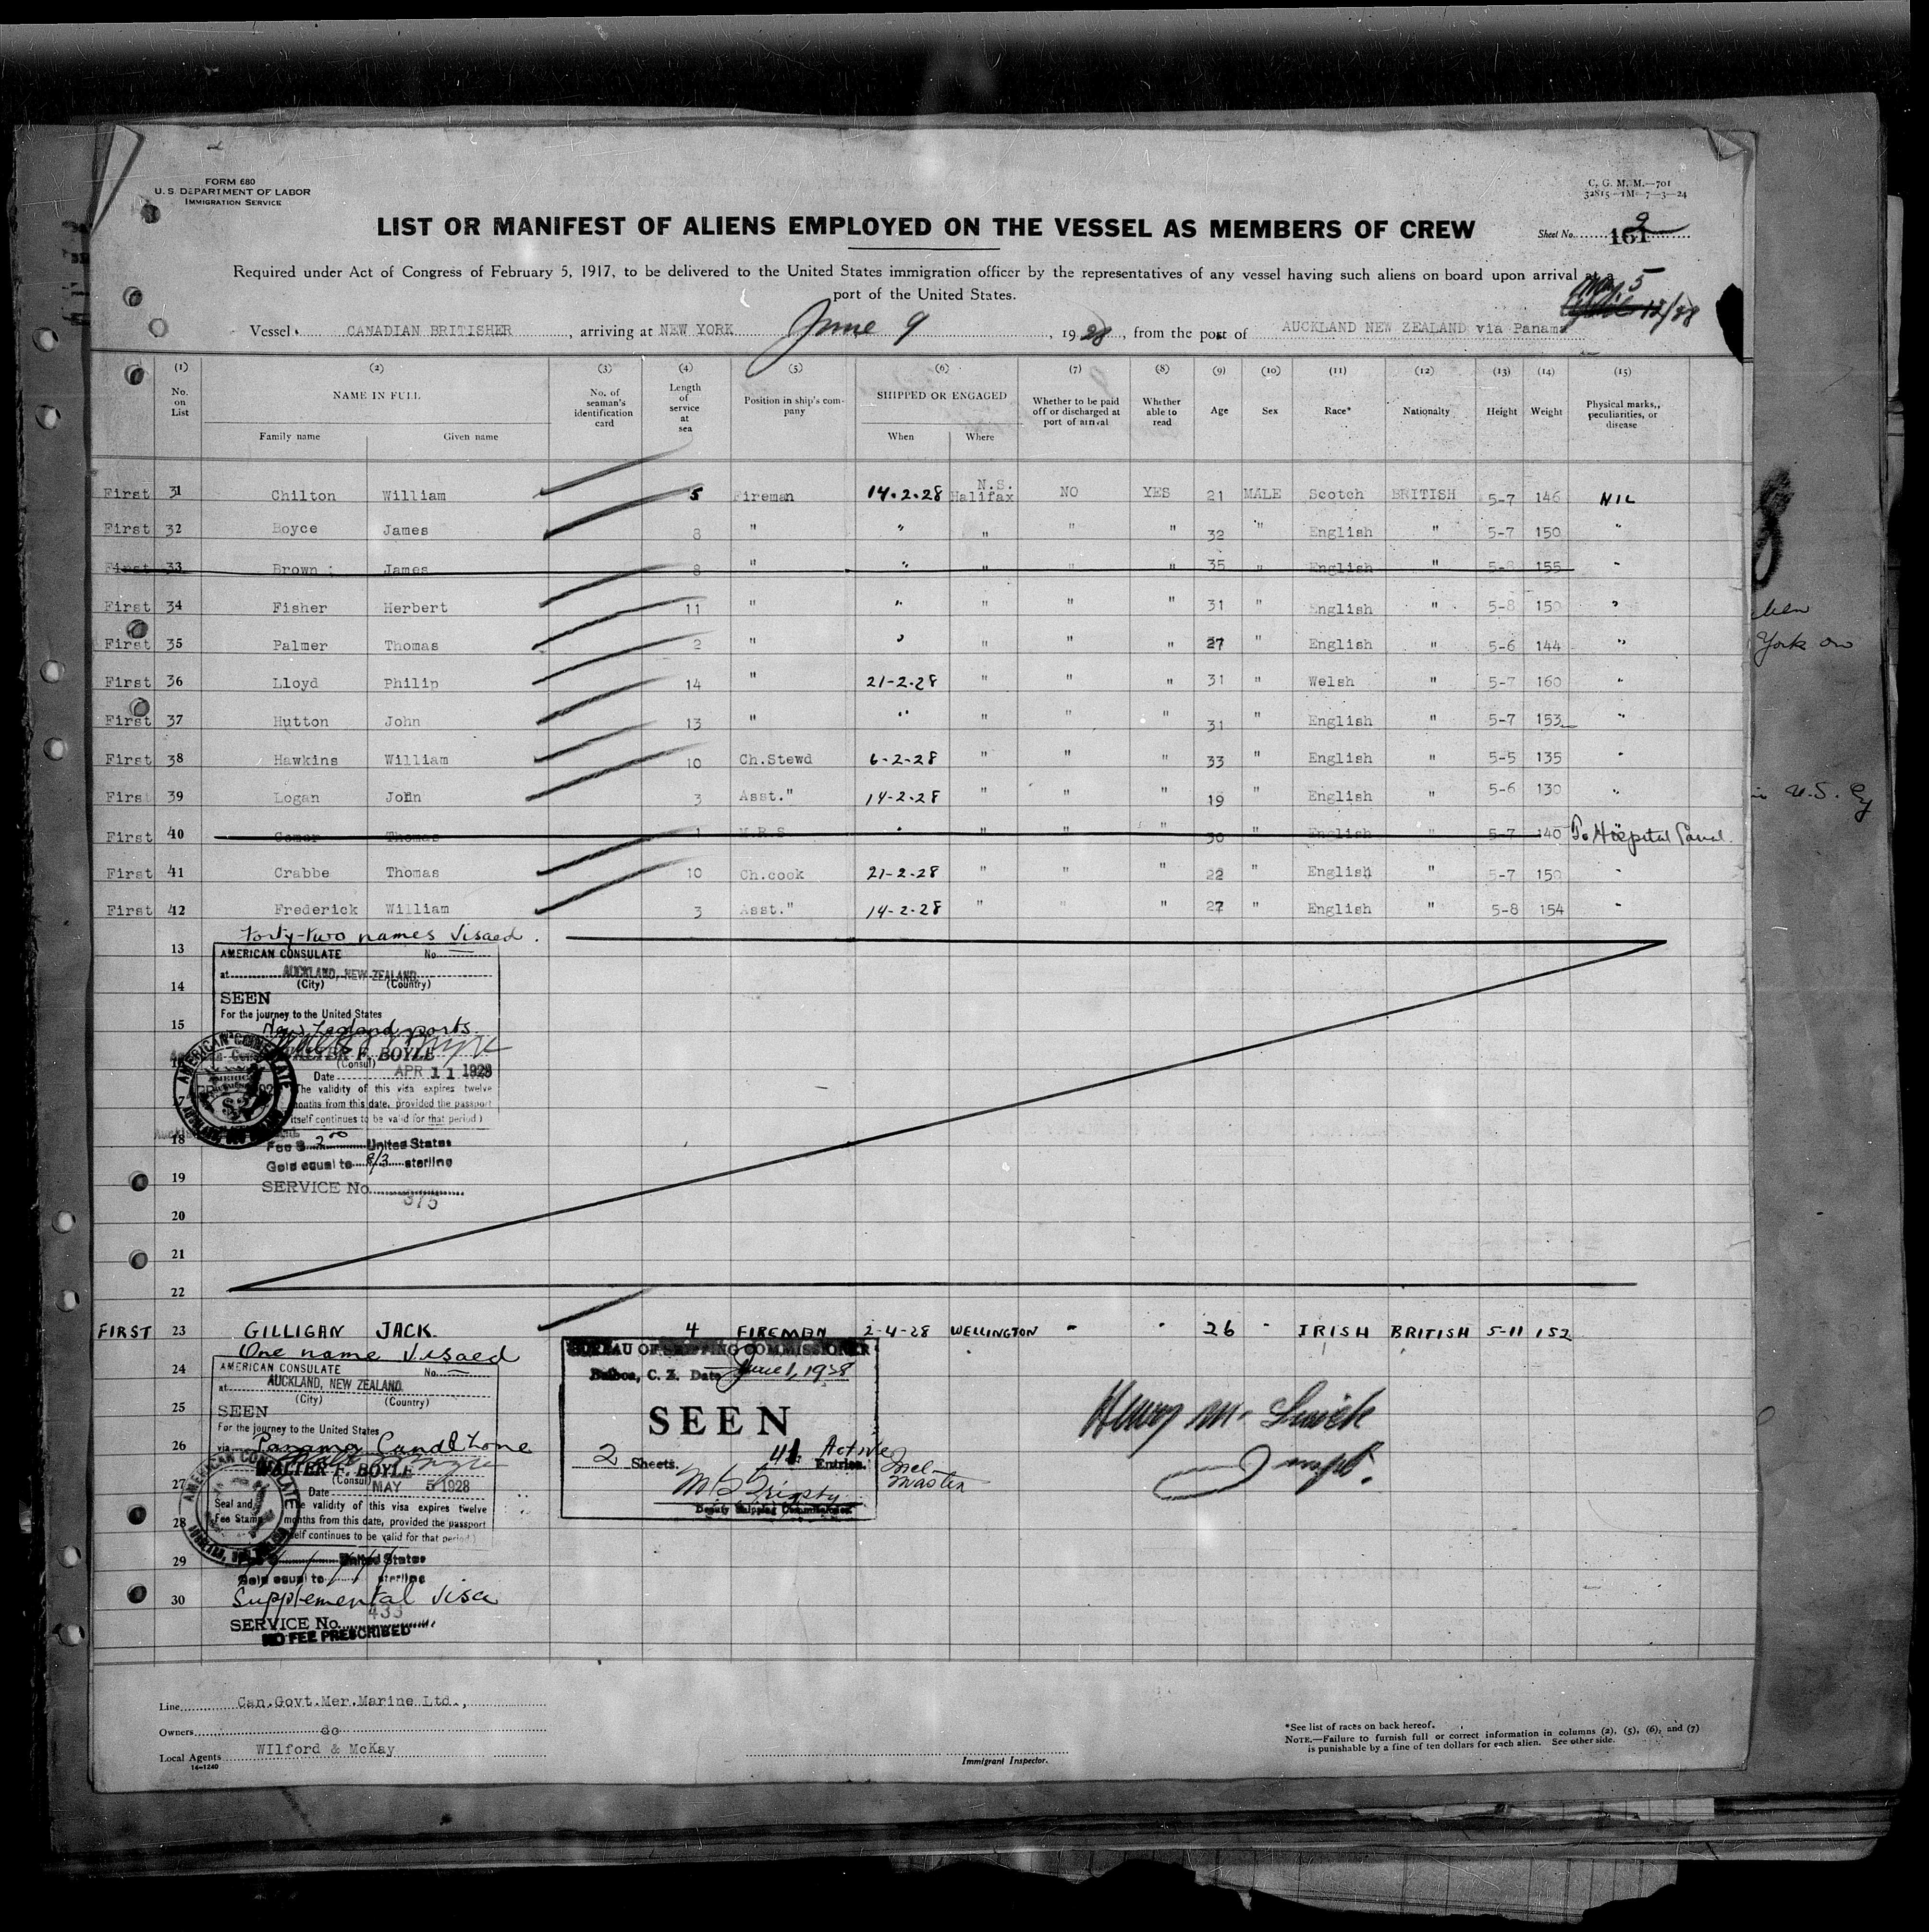 FORM 680
U. S. DEPARTMENT OF LABOR
IMMIGRATION SERVICE
C. G. M. M.—701
32815—1M—7—3—24
LIST OR MANIFEST OF ALIENS EMPLOYED ON THE VESSEL AS MEMBERS OF CREW
Sheet No. 161 2
Required under Act of Congress of February 5, 1917, to be delivered to the United States immigration officer by the representatives of any vessel having such aliens on board upon arrival at a
port of the United States.
May 5
12/28
Vessel CANADIAN BRITISHER, arriving at NEW YORK June 9, 1928, from the port of AUCKLAND NEW ZEALAND via Panama
(1) (2) (3) (4) (5) (6) (7) (8) (9) (10) (11) (12) (13) (14) (15)
No. on List NAME IN FULL Family name Given name No. of seaman's identification card Length of service at sea Position in ship's company SHIPPED OR ENGAGED When Where Whether to be paid off or discharged at port of arrival Whether able to read Age Sex Race* Nationalty Height Weight Physical marks, peculiarities, or disease
First 31 Chilton William 5 Fireman 14-2-28 N.S. Halifax NO YES 21 MALE Scotch BRITISH 5-7 146 NIL
First 32 Boyce James 8 " " " " " 32 " English " 5-7 150 "
First 33 Brown James 8 " " " " " 35 " English " 5-8 155 "
First 34 Fisher Herbert 11 " " " " " 31 " English " 5-8 150 "
First 35 Palmer Thomas 2 " " " " " 27 " English " 5-6 144 "
First 36 Lloyd Philip 14 " 21-2-28 " " " 31 " Welsh " 5-7 160 "
First 37 Hutton John 13 " " " " " 31 " English " 5-7 153 "
First 38 Hawkins William 10 Ch.Stewd 6-2-28 " " " 33 " English " 5-5 135 "
First 39 Logan John 3 Asst." 14-2-28 " " " 19 " English " 5-6 130 "
First 40 Comer Thomas 1 M.R.S " " " " 30 " English " 5-7 140 To Hospital
First 41 Crabbe Thomas 10 Ch.cook 21-2-28 " " " 22 " English " 5-7 150 "
First 42 Frederick William 3 Asst." 14-2-28 " " " 27 " English " 5-8 154 "
Forty-two names visaed.
13
AMERICAN CONSULATE No.
at AUCKLAND, NEW ZEALAND
(City) (Country)
14
SEEN
For the journey to the United States
15
New Zealand ports
WALTER F. BOYLE
16
(Consul)
Date APR 11 1928
The validity of this visa expires twelve
17
months from this date, provided the passport
itself continues to be valid for that period)
18
Fee $ 2.00 United States
Gold equal to 8/3 sterling
19
SERVICE No. 375
20
21
22
FIRST 23 GILLIGAN JACK. 4 FIREMAN 2-4-28 WELLINGTON " " 26 " IRISH BRITISH 5-11 152
One name visaed
24
AMERICAN CONSULATE No.
at AUCKLAND, NEW ZEALAND
(City) (Country)
25
SEEN
For the journey to the United States
26
via Panama Canal Zone
WALTER F. BOYLE
27
(Consul)
Date MAY 5 1928
Seal and Fee Stamp
(The validity of this visa expires twelve
28
months from this date, provided the passport
itself continues to be valid for that period)
29
United States
Gold equal to sterling
30
Supplemental visa
SERVICE No. 433
NO FEE PRESCRIBED
BUREAU OF SHIPPING COMMISSIONER
Balboa, C. Z. Date June 1, 1928
SEEN
2 Sheets. 41 Active Entries.
Incl- Master
Deputy Shipping Commissioner
Henry M.
Insp.
Line Can.Govt.Mer.Marine Ltd.,
Owners do
Local Agents WIlford & McKay
14-1240
Immigrant Inspector.
*See list of races on back hereof.
NOTE.—Failure to furnish full or correct information in columns (2), (5), (6), and (7)
is punishable by a fine of ten dollars for each alien. See other side.
York on
in U.S.